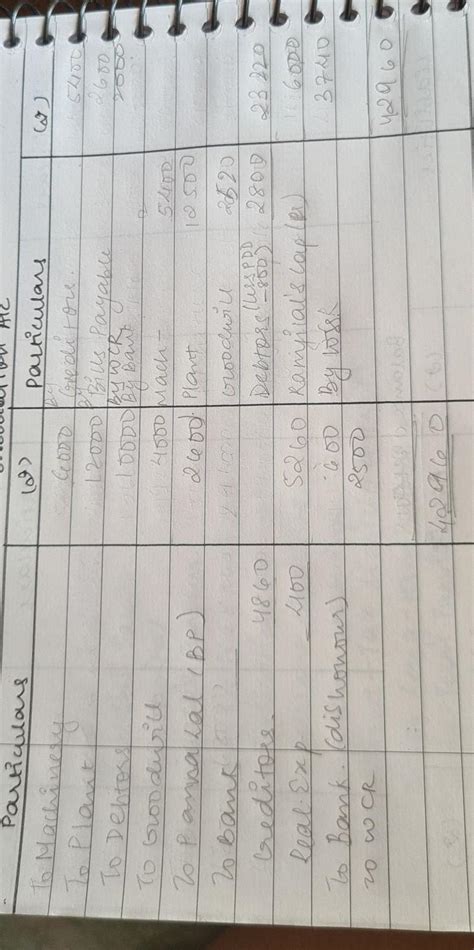 Particulars (₹) Particulars (₹)
To Machinery 6000 By Creditors. 5400
To Plant 12000 By Bills Payable 2600
To Debtors 10000 By WCR 2000
By Bank
To Goodwill 4000 Mach - 5400
To Pannalal (BP) 2600 Plant 12500
To Bank Goodwill 2520
Creditors. 4860 Debtors (less PDD -800) 2800 23220
Real. Exp 400 5260 Ramjilal's Cap (Dr) 6000
To Bank. (dishonour) 600 By Loss 3740
To WCR 2500
42960 42960